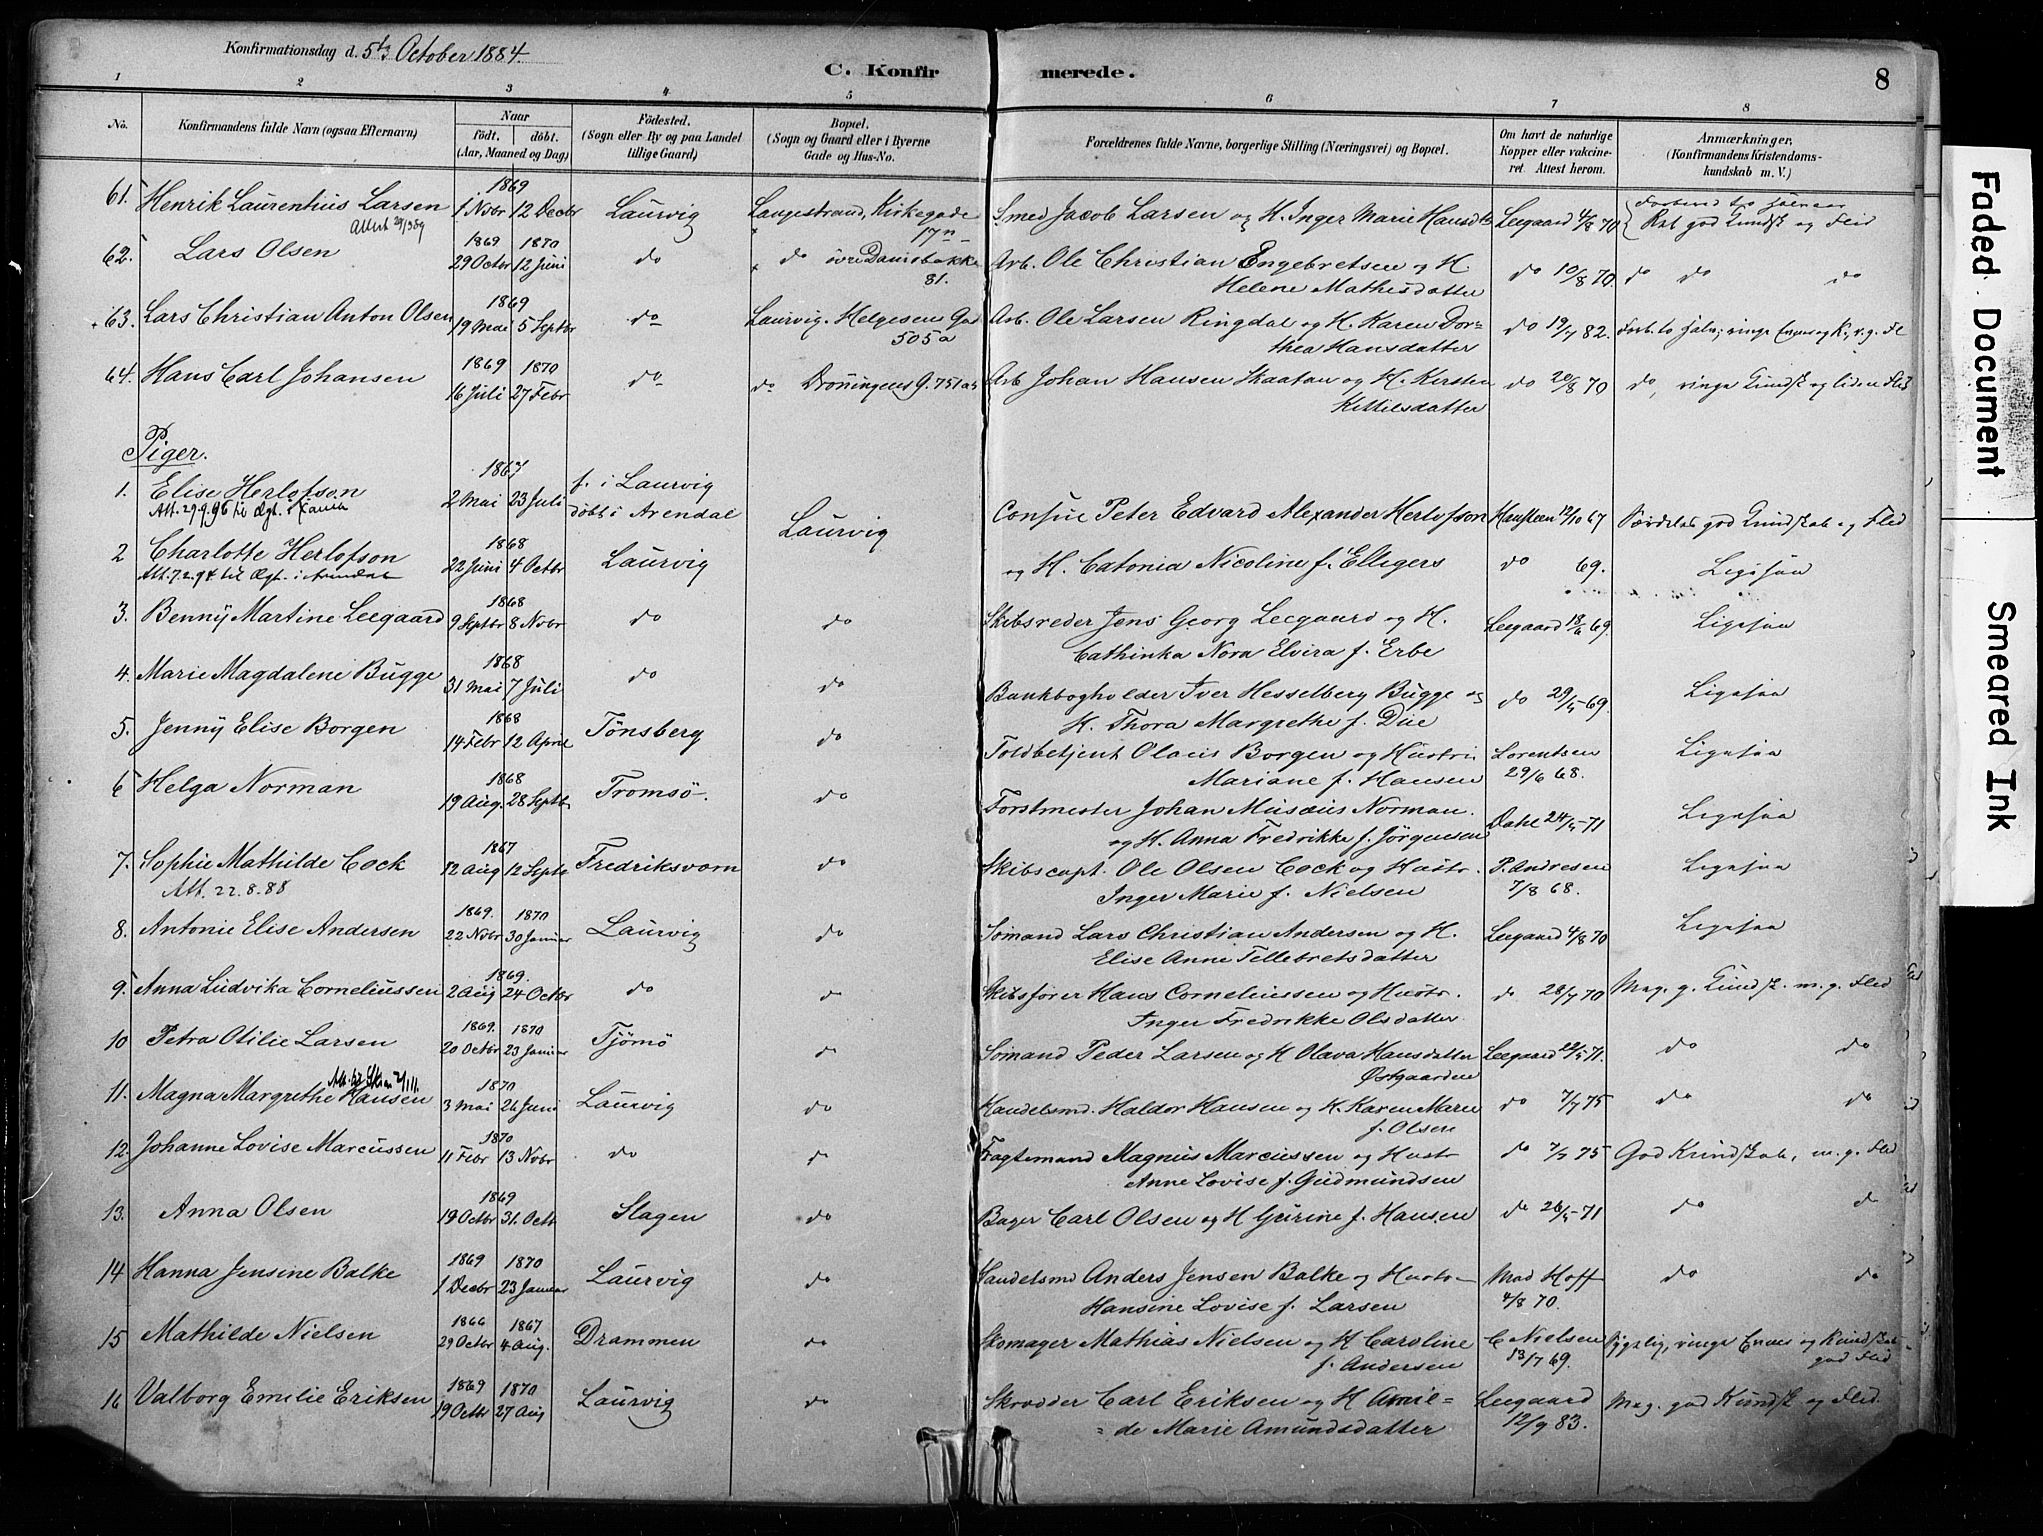 Konfirmationsdag d. 5te October 1884.
C. Konfirmerede.
8
1 2 3 4 5 6 7 8
No.
Konfirmandens fulde Navn (ogsaa Efternavn)
Naar
födt. döbt.
(Aar, Maaned og Dag)
Födested.
(Sogn eller By og paa Landet
tillige Gaard)
Bopæl.
(Sogn og Gaard eller i Byerne
Gade og Hus-No.
Forældrenes fulde Navne, borgerlige Stilling (Næringsvei) og Bopæl.
Om havt de naturlige
Kopper eller vakcine-
ret. Attest herom.
Anmærkninger,
(Konfirmandens Kristendoms-
kundskab m. V.)
1869
61. Henrik Laurenthius Larsen 1 Novbr 12 Decbr Laurvig Langestrand, Kirkegade Smed Jacob Larsen og H. Inger Marie Hansdtr Leegaard 4/8 70 god Kundsk og Flid
17
1869 1870
62. Lars Olsen 29 Octbr 12 Juni do do övre Damsbakke Arb. Ole Christian Engebretsen og H. do 10/8 70. do do do
81. Helene Mathisdatter
1869
63. Lars Christian Anton Olsen 19 Mai 5 Septbr do Laurvig. Helgesens Gad Arb. Ole Larsen Ringdal og H. Karen Dor= do 19/4 82.
505a thea Hansdatter
1869 1870
64. Hans Carl Johansen 16 Juli 27 Febr do do Dronningens G. 751 Arb Johan Hansen og H. Kirsten do 20/8 70 do, ringe Kundsk og liden Flid
Kittilsdatter
Piger.
1867
1. Elise Herlofson 2 Mai 23 Juli f. i Laurvig
Att. 29.9.96 til Ægt. i
döbt i Arendal Laurvig Consul Peter Edvard Alexander Herlofson 12/10 67 Særdeles god Kundskab og Flid
1868
2 Charlotte Herlofson 22 Juni 4 Octbr Laurvig og H. Catonia Nicoline f. Elligers do 69. Ligesaa
Att. 7.2.94 til Ægt. i Arendal
1868
3. Benny Martine Leegaard 9 Septbr 8 Novbr do do Skibsreder Jens Georg Leegaard og H. Leegaard 18/6 69. Ligesaa
Cathinka Nora Elvira f. Erbe
1868
4. Marie Magdalene Bugge 31 Mai 7 Juli do do Bankbogholder Iver Hesselberg Bugge og do 29/5 69. Ligesaa
H. Thora Margrethe f. Due
1868
5. Jenny Elise Borgen 14 Febr 12 April Tönsberg do Toldbetjent Olaus Borgen og Hustru Lorentsen Ligesaa
Mariane f. Hansen 29/6 68.
1868
6 Helga Norman 19 Aug. 28 Septbr Tromsö. do Forstmester Johan Musæus Norman. Dahl 24/5 71 Ligesaa
og H. Anna Fredrikke f. Jörgensen
1867
7. Sophie Mathilde Cock 12 Aug 12 Septb Fredriksværn do Skibscapt. Ole Olsen Cock og Hustr. P. Andresen Ligesaa
Att. 22.8.88 Inger Marie f. Nielsen 7/8 68.
1869. 1870
8. Antonie Elise Andersen 22 Novbr 30 Januar Laurvig do Sömand Lars Christian Andersen og H. Leegaard 4/8 70 Ligesaa
Elise Anne Tellebretsdatter
1869.
9. Anna Ludvika Corneliussen 2 Aug 24 Octbr do do Skibsförer Hans Corneliussen og Hustr. do 28/7 70 Meg. g. Kundsk. m. g. Flid
Inger Fredrikke Olsdatter.
1869. 1870
10 Petra Otilie Larsen 20 Octbr 23 Januar Tjömö do Sömand Peder Larsen og H Olava Hansdatter Leegaard 22/5 71. do do
Østgaarden
Att. til Skien 2/1 11.
1870
11. Magna Margrethe Hansen 3 Mai 26 Juni Laurvig do Handelsmd. Haldor Hansen og H. Karen Marie do 7/7 75 do do
f. Olsen
1870
12. Johanne Lovise Marcussen 11 Febr 13 Novbr do do Fragtemand Magnus Marcussen og Hustr do 7/7 75 God Kundskab, m. g. Flid
Anne Lovise f. Gudmundsen
1869
13. Anna Olsen 19 Octbr 31. Octb Slagen do Bager Carl Olsen og H Gurine f. Hansen do 26/5 71 do do
1869 1870
14 Hanna Jensine Balke 1 Decbr 23 Januar Laurvig do Handelsmd Anders Jensen Balke og Hustr Mad Hoff do do
Hansine Lovise f. Larsen 4/8 70.
1866 1867
15 Mathilde Nielsen 29 Octbr 4 Aug. Drammen do Skomager Mathias Nielsen og H Caroline C Nielsen Sygelig, ringe Evner og Kundskab
f. Andersen 13/7 69. god Flid
1869 1870
16 Valborg Emilie Eriksen 19 Octbr 27 Aug Laurvig do Skrædder Carl Eriksen og H Amil= Leegaard Meg. god Kundsk og Flid.
= de Marie Amundsdatter 12/9 83.
Faded Document
Smeared Ink